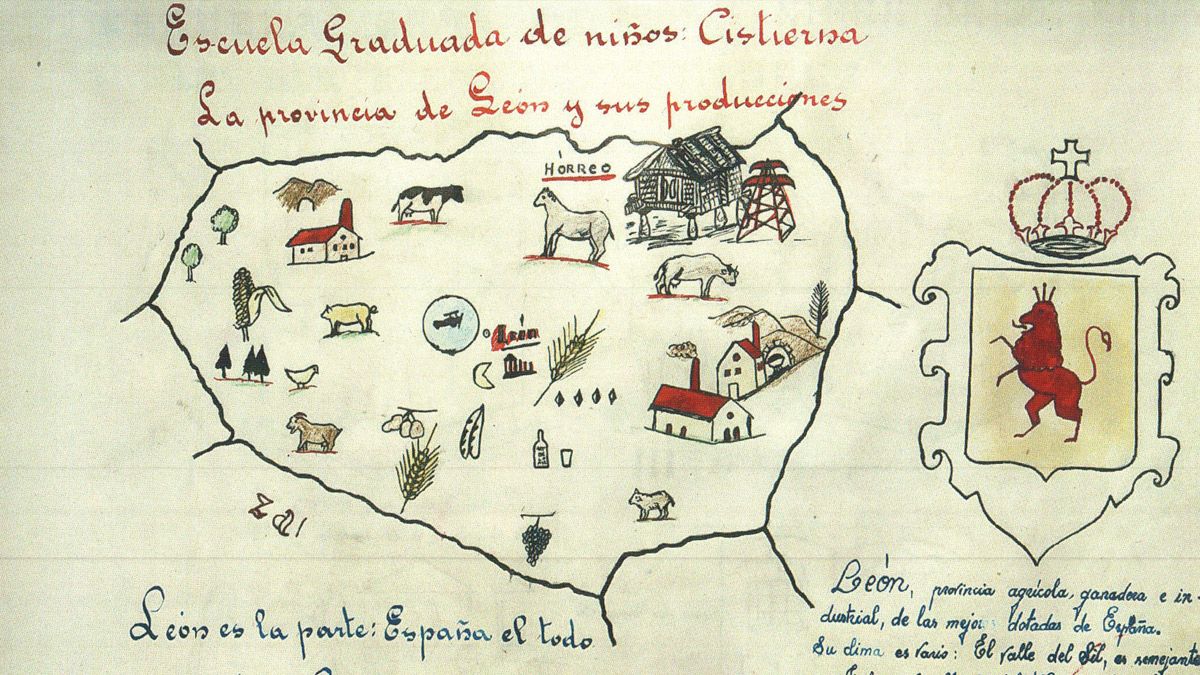 Escuela Graduada de niños: Cistierna
La provincia de León y sus producciones
HÓRREO
León
León es la parte: España el todo
León, provincia agrícola, ganadera e in-
dustrial, de las mejores dotadas de España.
Su clima es vario: El valle del Sil, es semejante